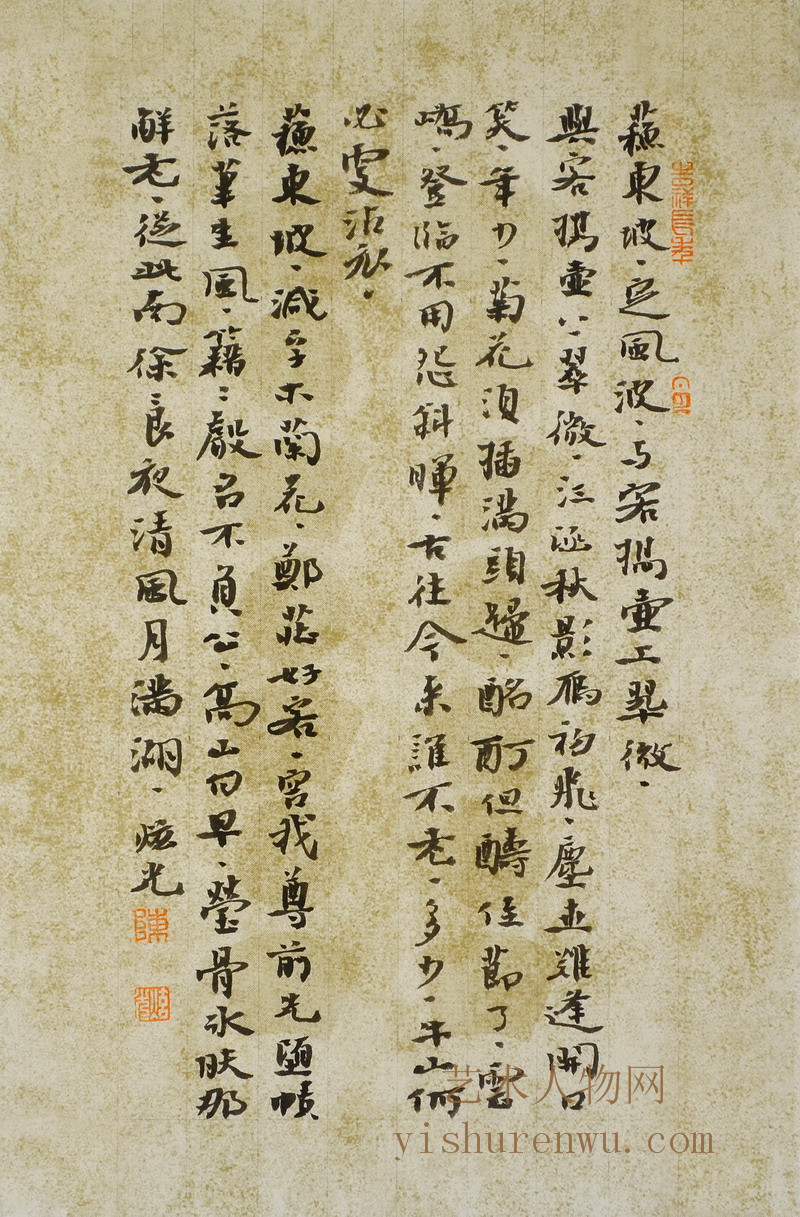 蘇東坡、定風波、与客携壺上翠微、
與客携壺上翠微、江涵秋影雁初飛、塵世難逢開口
笑、年少、菊花須插滿頭歸、酩酊但酬佳節了、雲
嶠、登臨不用怨斜暉、古往今來誰不老、多少、牛山何
必更沾衣、
蘇東坡、減字木蘭花、鄭莊好客、容我尊前先墮幘
落筆生風、籍〻聲名不負公、高山白早、瑩骨冰肤那
解老、從此南徐良夜清風月滿湖、光
陳
艺术人物网
yishurenwu.com